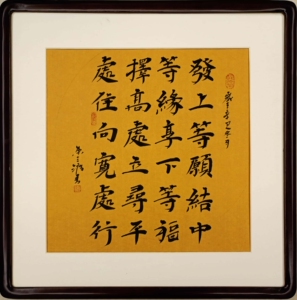 發上等願結中
等緣享下等福
擇高處立尋平
處住向寬處行